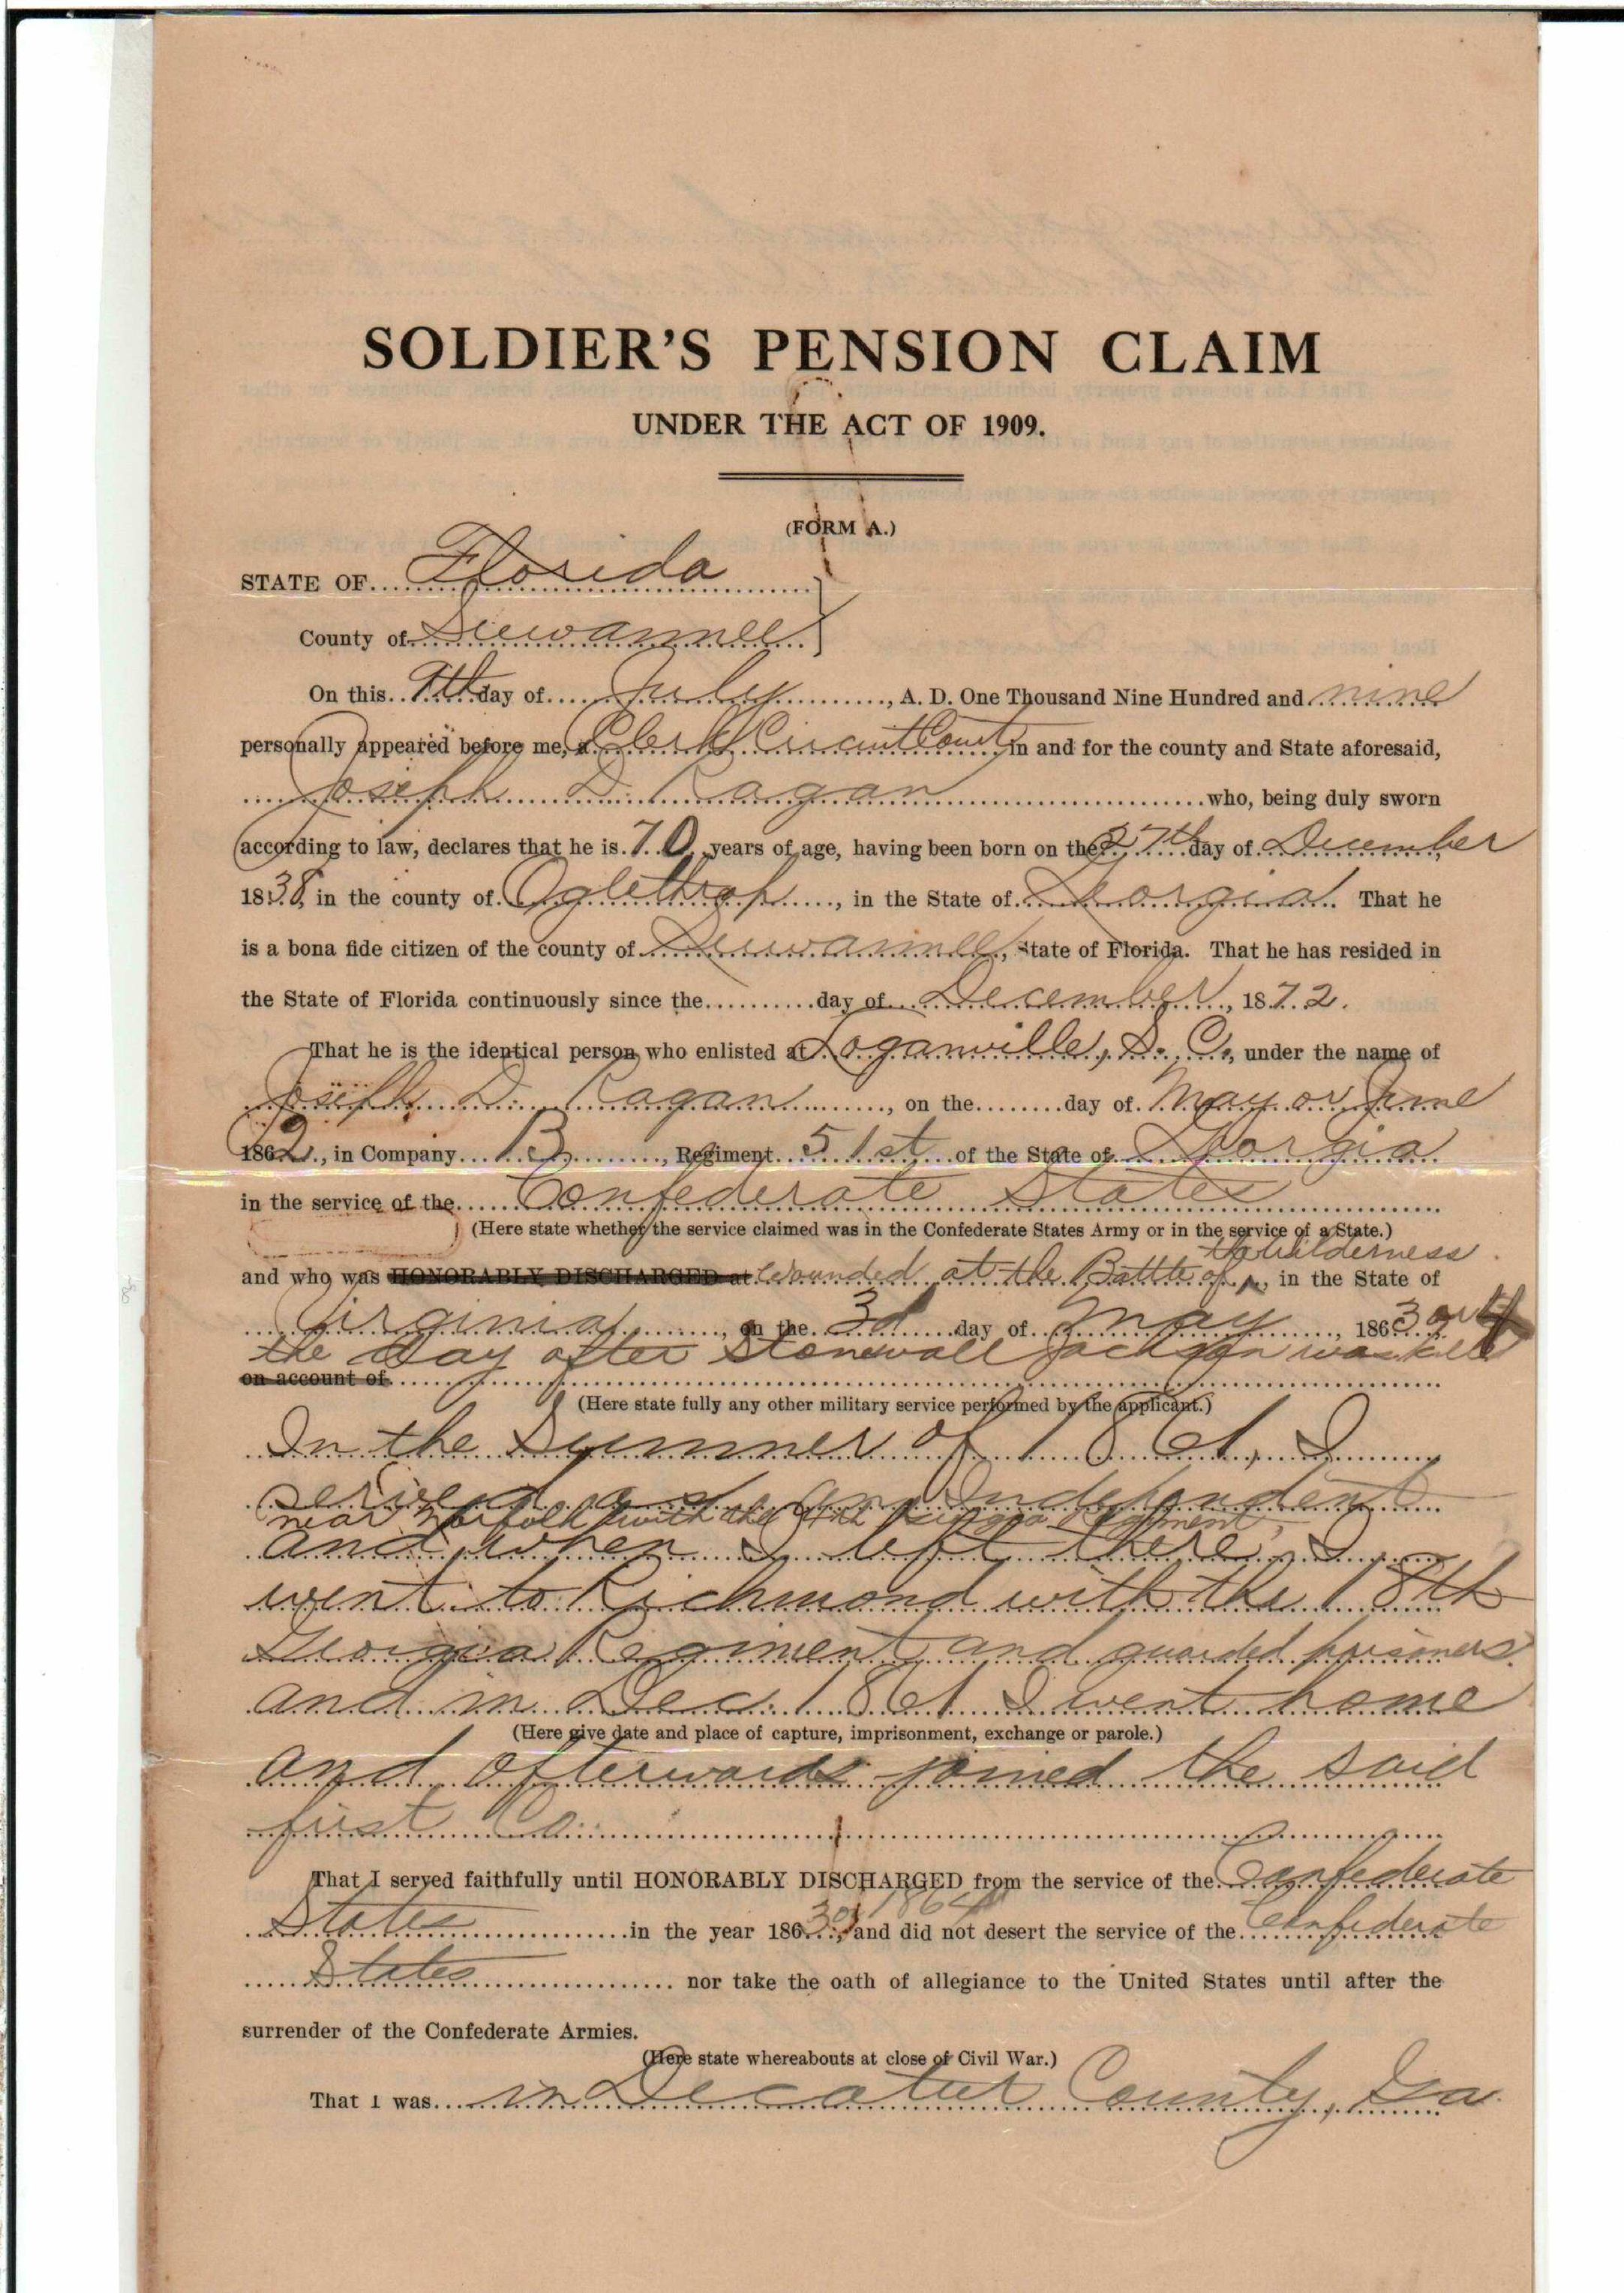 SOLDIER'S PENSION CLAIM
UNDER THE ACT OF 1909.
(FORM A.)
STATE OF Florida
County of Suwannee
On this 9th day of July, A. D. One Thousand Nine Hundred and nine
personally appeared before me, a Clerk Circuit Court in and for the county and State aforesaid,
Joseph D. Ragan who, being duly sworn
according to law, declares that he is 70 years of age, having been born on the 27th day of December
1838, in the county of Oglethrop, in the State of Georgia. That he
is a bona fide citizen of the county of Suwannee, State of Florida. That he has resided in
the State of Florida continuously since the day of December, 1872.
That he is the identical person who enlisted at Loganville, S. C., under the name of
Joseph D. Ragan, on the day of May or June
1862, in Company B, Regiment 51st of the State of Georgia
in the service of the Confederate States
(Here state whether the service claimed was in the Confederate States Army or in the service of a State.)
the Wilderness
and who was HONORABLY DISCHARGED at Wounded at the Battle of, in the State of
Virginia, on the 3d day of May, 1863 or 4
the day after Stonewall Jackson was killed
on account of
(Here state fully any other military service performed by the applicant.)
In the Summer of 1861, I
served as an Independent
near Norfolk with the 4th Georgia Regiment,
and when I left there, I
went to Richmond with the 18th
Georgia Regiment and guarded prisoners.
and in Dec. 1861 I went home
(Here give date and place of capture, imprisonment, exchange or parole.)
and afterwards joined the said
first Co.
That I served faithfully until HONORABLY DISCHARGED from the service of the Confederate
States in the year 1863 or 1864, and did not desert the service of the Confederate
States nor take the oath of allegiance to the United States until after the
surrender of the Confederate Armies.
(Here state whereabouts at close of Civil War.)
That I was in Decatur County, Ga.